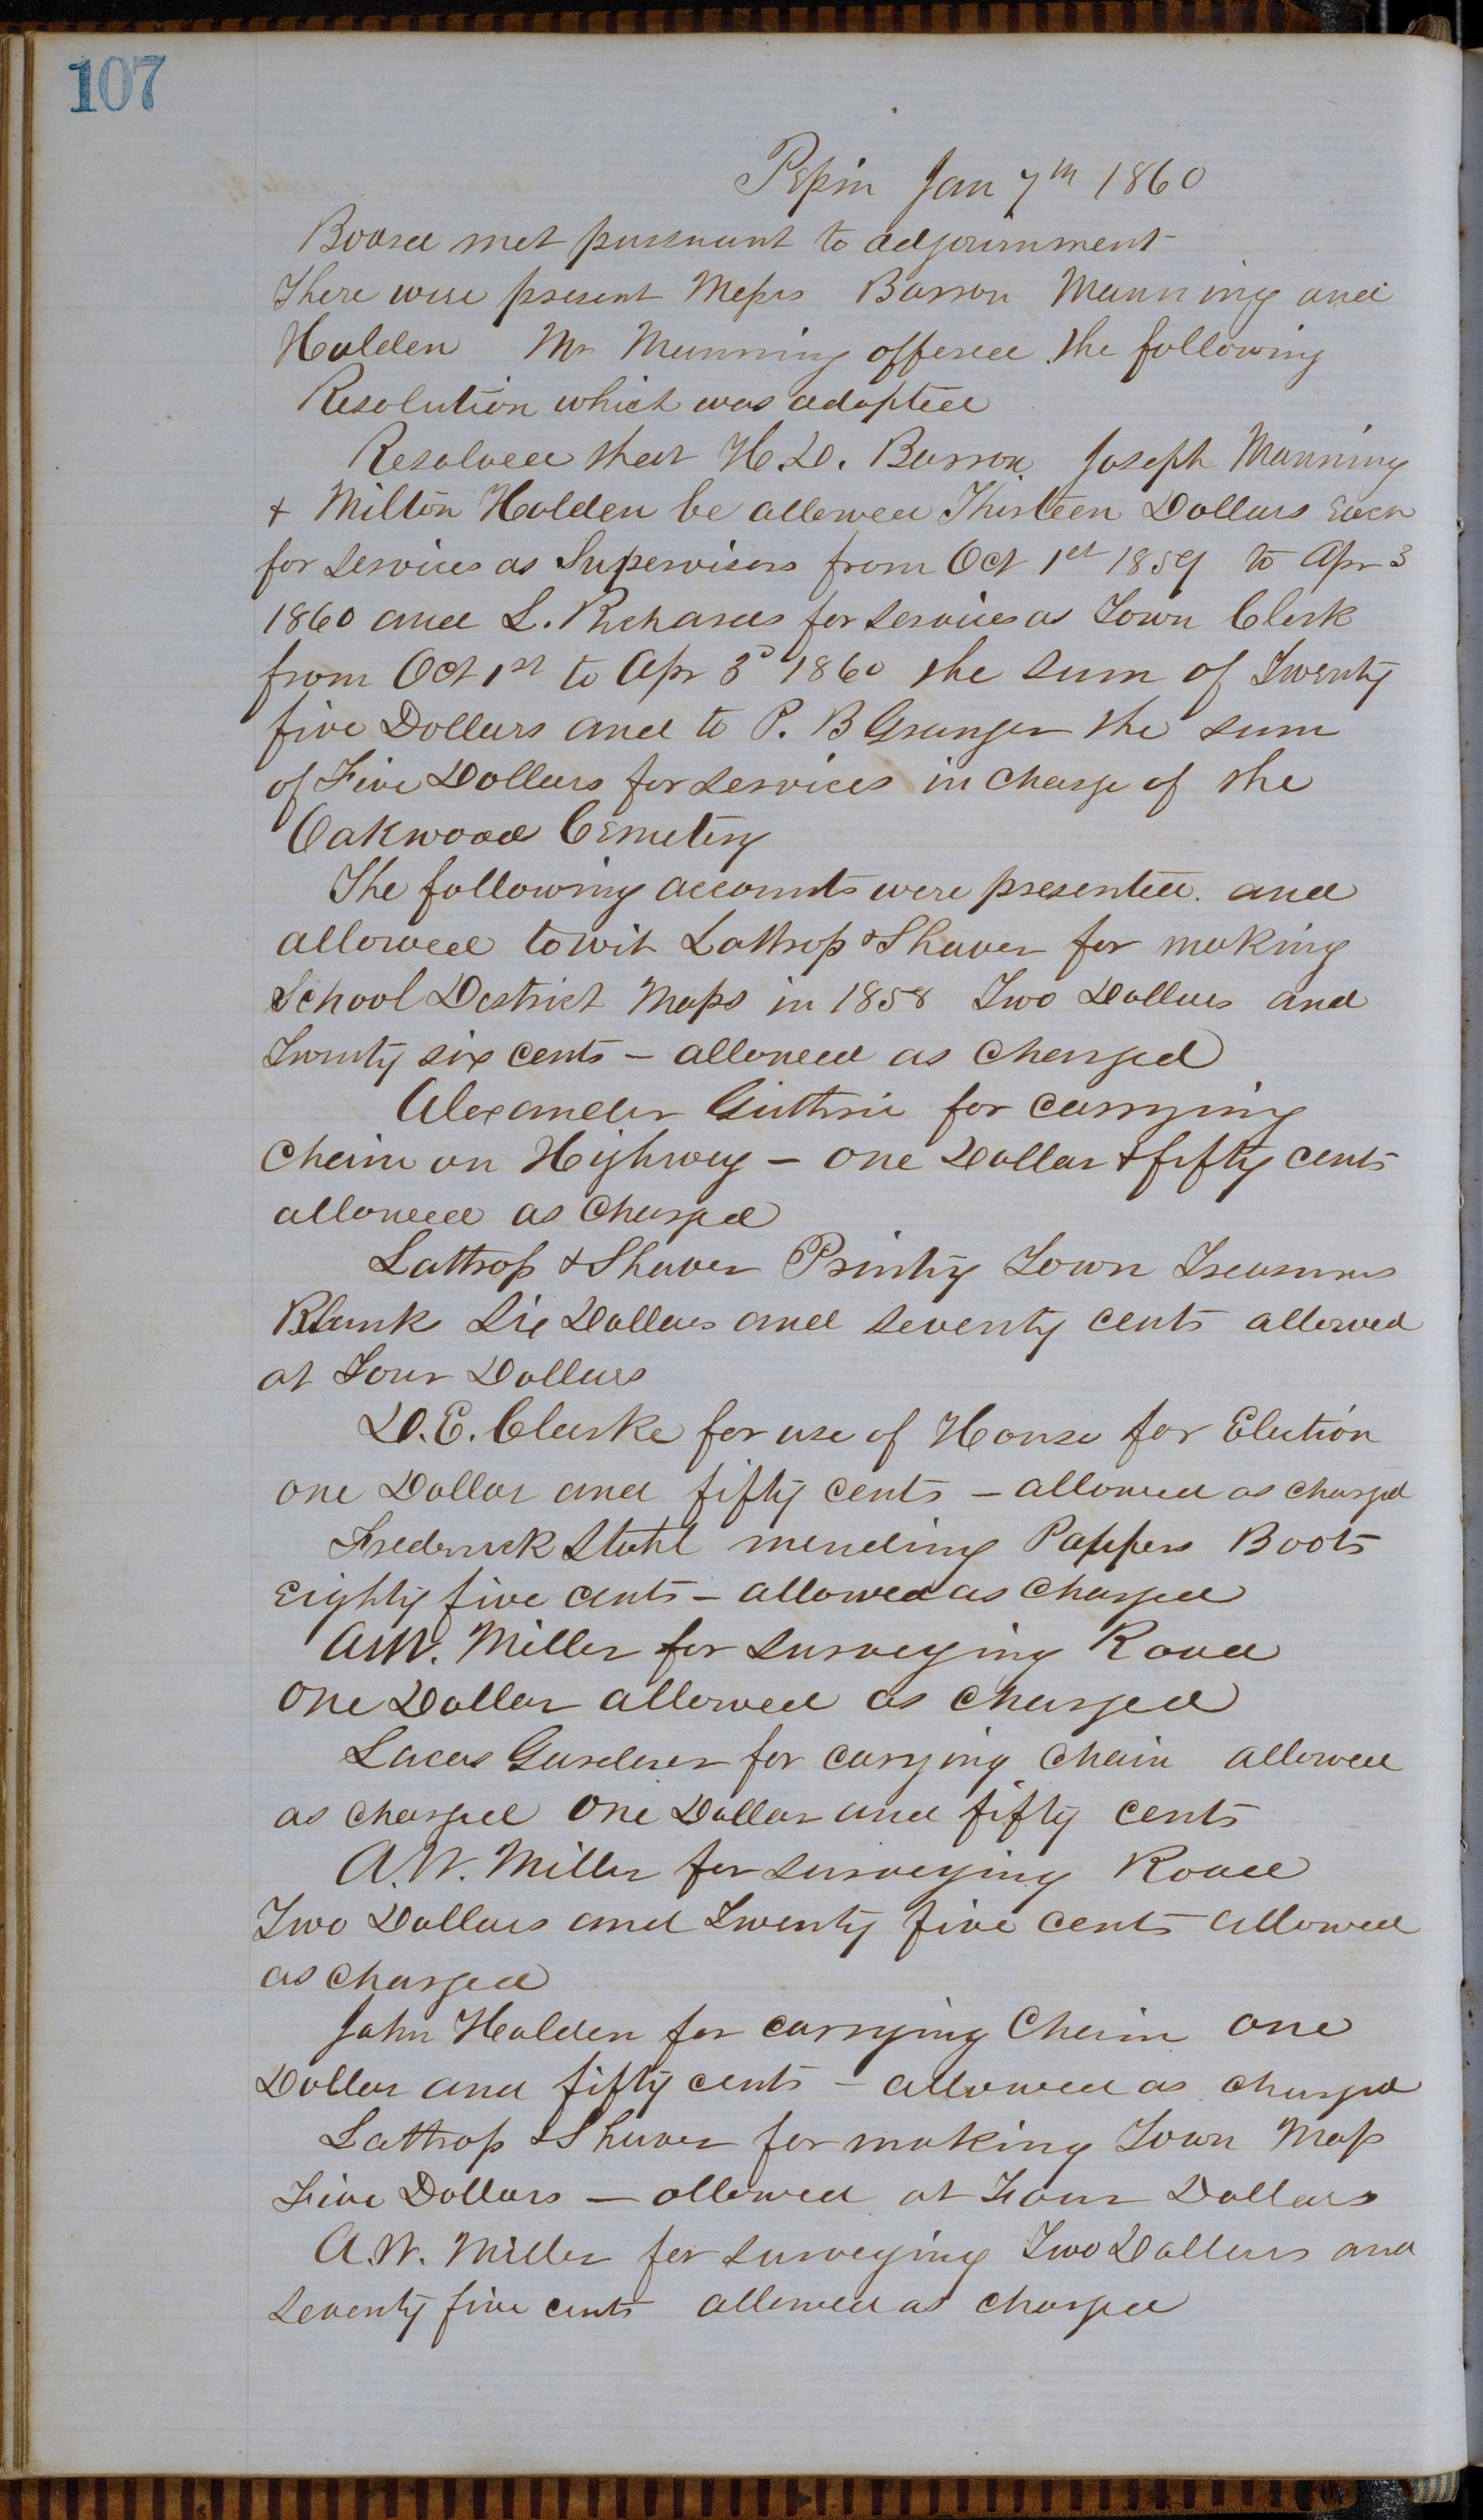 107
Pepin Jan 7th 1860
Board met pursuant to adjournment
There were present Messrs Barron Manning and
Holden Mr Manning offered the following
Resolution which was adopted
Resolved that H.D. Barron Joseph Manning
+ Milton Holden be allowed Thirteen Dollars Each
for services as Supervisors from Oct 1st 1859 to Apr 3
1860 and L. Richards for services as Town Clerk
from Oct 1st to Apr 3d 1860 the sum of Twenty
five Dollars and to P. B Granger the sum
of Five Dollars for services in charge of the
Oakwood Cemetery
The following accounts were presented and
allowed to wit Lathrop & Shaver for making
School District Maps in 1858 Two Dollars and
Twenty six cents — allowed as Charged
Alexander Guthrie for carrying
Chain on Highway — one Dollar & fifty cents
allowed as Charged
Lathrop & Shaver Printing Town Treasurers
Blank Six Dollars and seventy cents allowed
at Four Dollars
D.E. Clarke for use of House for Election
one Dollar and fifty cents — allowed as charged
Frederick mending Boots
Eighty five cents — allowed as Charged
A.W. Miller for surveying Road
One Dollar allowed as Charged
Lucas Gardener for carrying chain allowed
as charged One Dollar and fifty cents
A.W. Miller for surveying Road
Two Dollars and Twenty five cents allowed
as charged
John Holden for carrying Chain one
Dollar and fifty cents — allowed as charged
Lathrop & Shaver for making Town Map
Five Dollars — allowed at Four Dollars
A.W. Miller for surveying Two Dollars and
seventy five cents allowed as charged